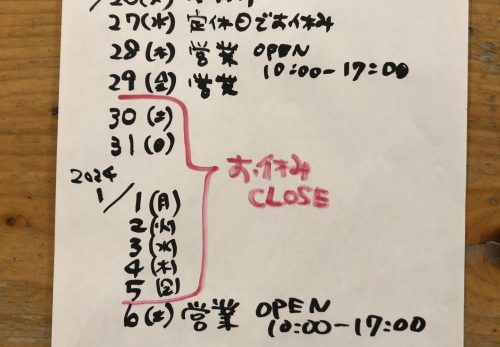 27(水) 定休日でお休み
28(木) 営業 OPEN
10:00-17:00
29(金) 営業
30(土)
31(日)
お休み
CLOSE
2024
1/1(月)
2(火)
3(水)
4(木)
5(金)
6(土) 営業 OPEN
10:00-17:00